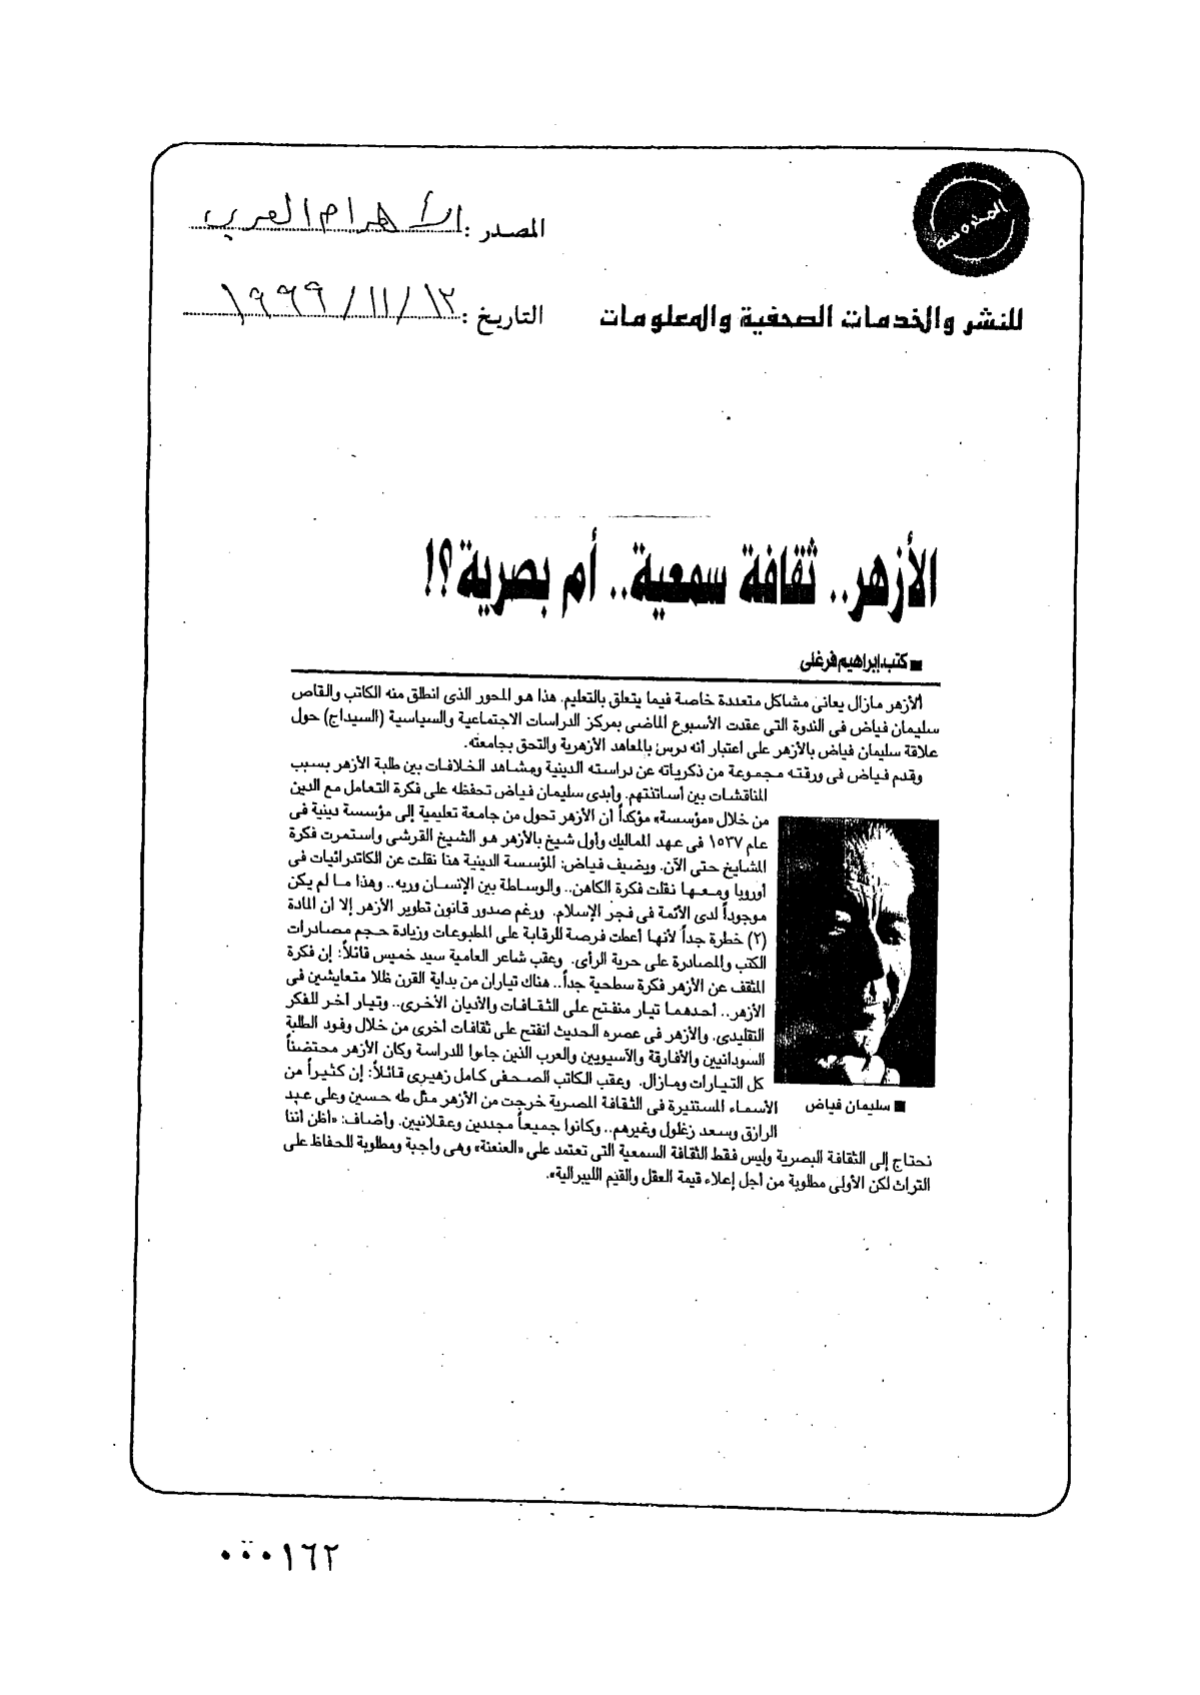 المحروسة
المصدر : الأهرام العربى
للنشر والخدمات الصحفية والمعلومات
التاريخ : ١٩٩٩/١١/١٢
الأزهر.. ثقافة سمعية.. أم بصرية؟!
■ كتب إبراهيم فرغلى
الأزهر مازال يعانى مشاكل متعددة خاصة فيما يتعلق بالتعليم. هذا هو المحور الذى انطلق منه الكاتب والقاص
سليمان فياض فى الندوة التى عقدت الأسبوع الماضى بمركز الدراسات الاجتماعية والسياسية (السيداج) حول
علاقة سليمان فياض بالأزهر على اعتبار أنه درس بالمعاهد الأزهرية والتحق بجامعته.
وقدم فياض فى ورقته مجموعة من ذكرياته عن دراسته الدينية ومشاهد الخلافات بين طلبة الأزهر بسبب
المناقشات بين أساتذتهم. وأبدى سليمان فياض تحفظه على فكرة التعامل مع الدين
من خلال «مؤسسة» مؤكداً أن الأزهر تحول من جامعة تعليمية إلى مؤسسة دينية فى
عام ١٥٣٧ فى عهد المماليك وأول شيخ بالأزهر هو الشيخ القرشى واستمرت فكرة
المشايخ حتى الآن. ويضيف فياض: المؤسسة الدينية هنا نقلت عن الكاتدرائيات فى
أوروبا ومعها نقلت فكرة الكاهن.. والوساطة بين الإنسان وربه.. وهذا ما لم يكن
موجوداً لدى الأئمة فى فجر الإسلام. ورغم صدور قانون تطوير الأزهر إلا أن المادة
(٢) خطرة جداً لأنها أعطت فرصة للرقابة على المطبوعات وزيادة حجم مصادرات
الكتب والمصادرة على حرية الرأى. وعقب شاعر العامية سيد خميس قائلاً: إن فكرة
المثقف عن الأزهر فكرة سطحية جداً.. هناك تياران من بداية القرن ظلا متعايشين فى
الأزهر.. أحدهما تيار منفتح على الثقافات والأديان الأخرى.. وتيار آخر للفكر
التقليدى. والأزهر فى عصره الحديث انفتح على ثقافات أخرى من خلال وفود الطلبة
السودانيين والأفارقة والآسيويين والعرب الذين جاءوا للدراسة وكان الأزهر محتضناً
كل التيارات ومازال. وعقب الكاتب الصحفى كامل زهيرى قائلاً: إن كثيراً من
الأسماء المستنيرة فى الثقافة المصرية خرجت من الأزهر مثل طه حسين وعلى عبد
الرازق وسعد زغلول وغيرهم.. وكانوا جميعاً مجددين وعقلانيين. وأضاف: «أظن أننا
نحتاج إلى الثقافة البصرية وليس فقط الثقافة السمعية التى تعتمد على «العنعنة» وهى واجبة ومطلوبة للحفاظ على
التراث لكن الأولى مطلوبة من أجل إعلاء قيمة العقل والقيم الليبرالية».
■ سليمان فياض
٠٠٠١٦٢